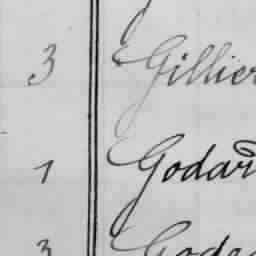 3 Gillier
1 Godard
3 Godar